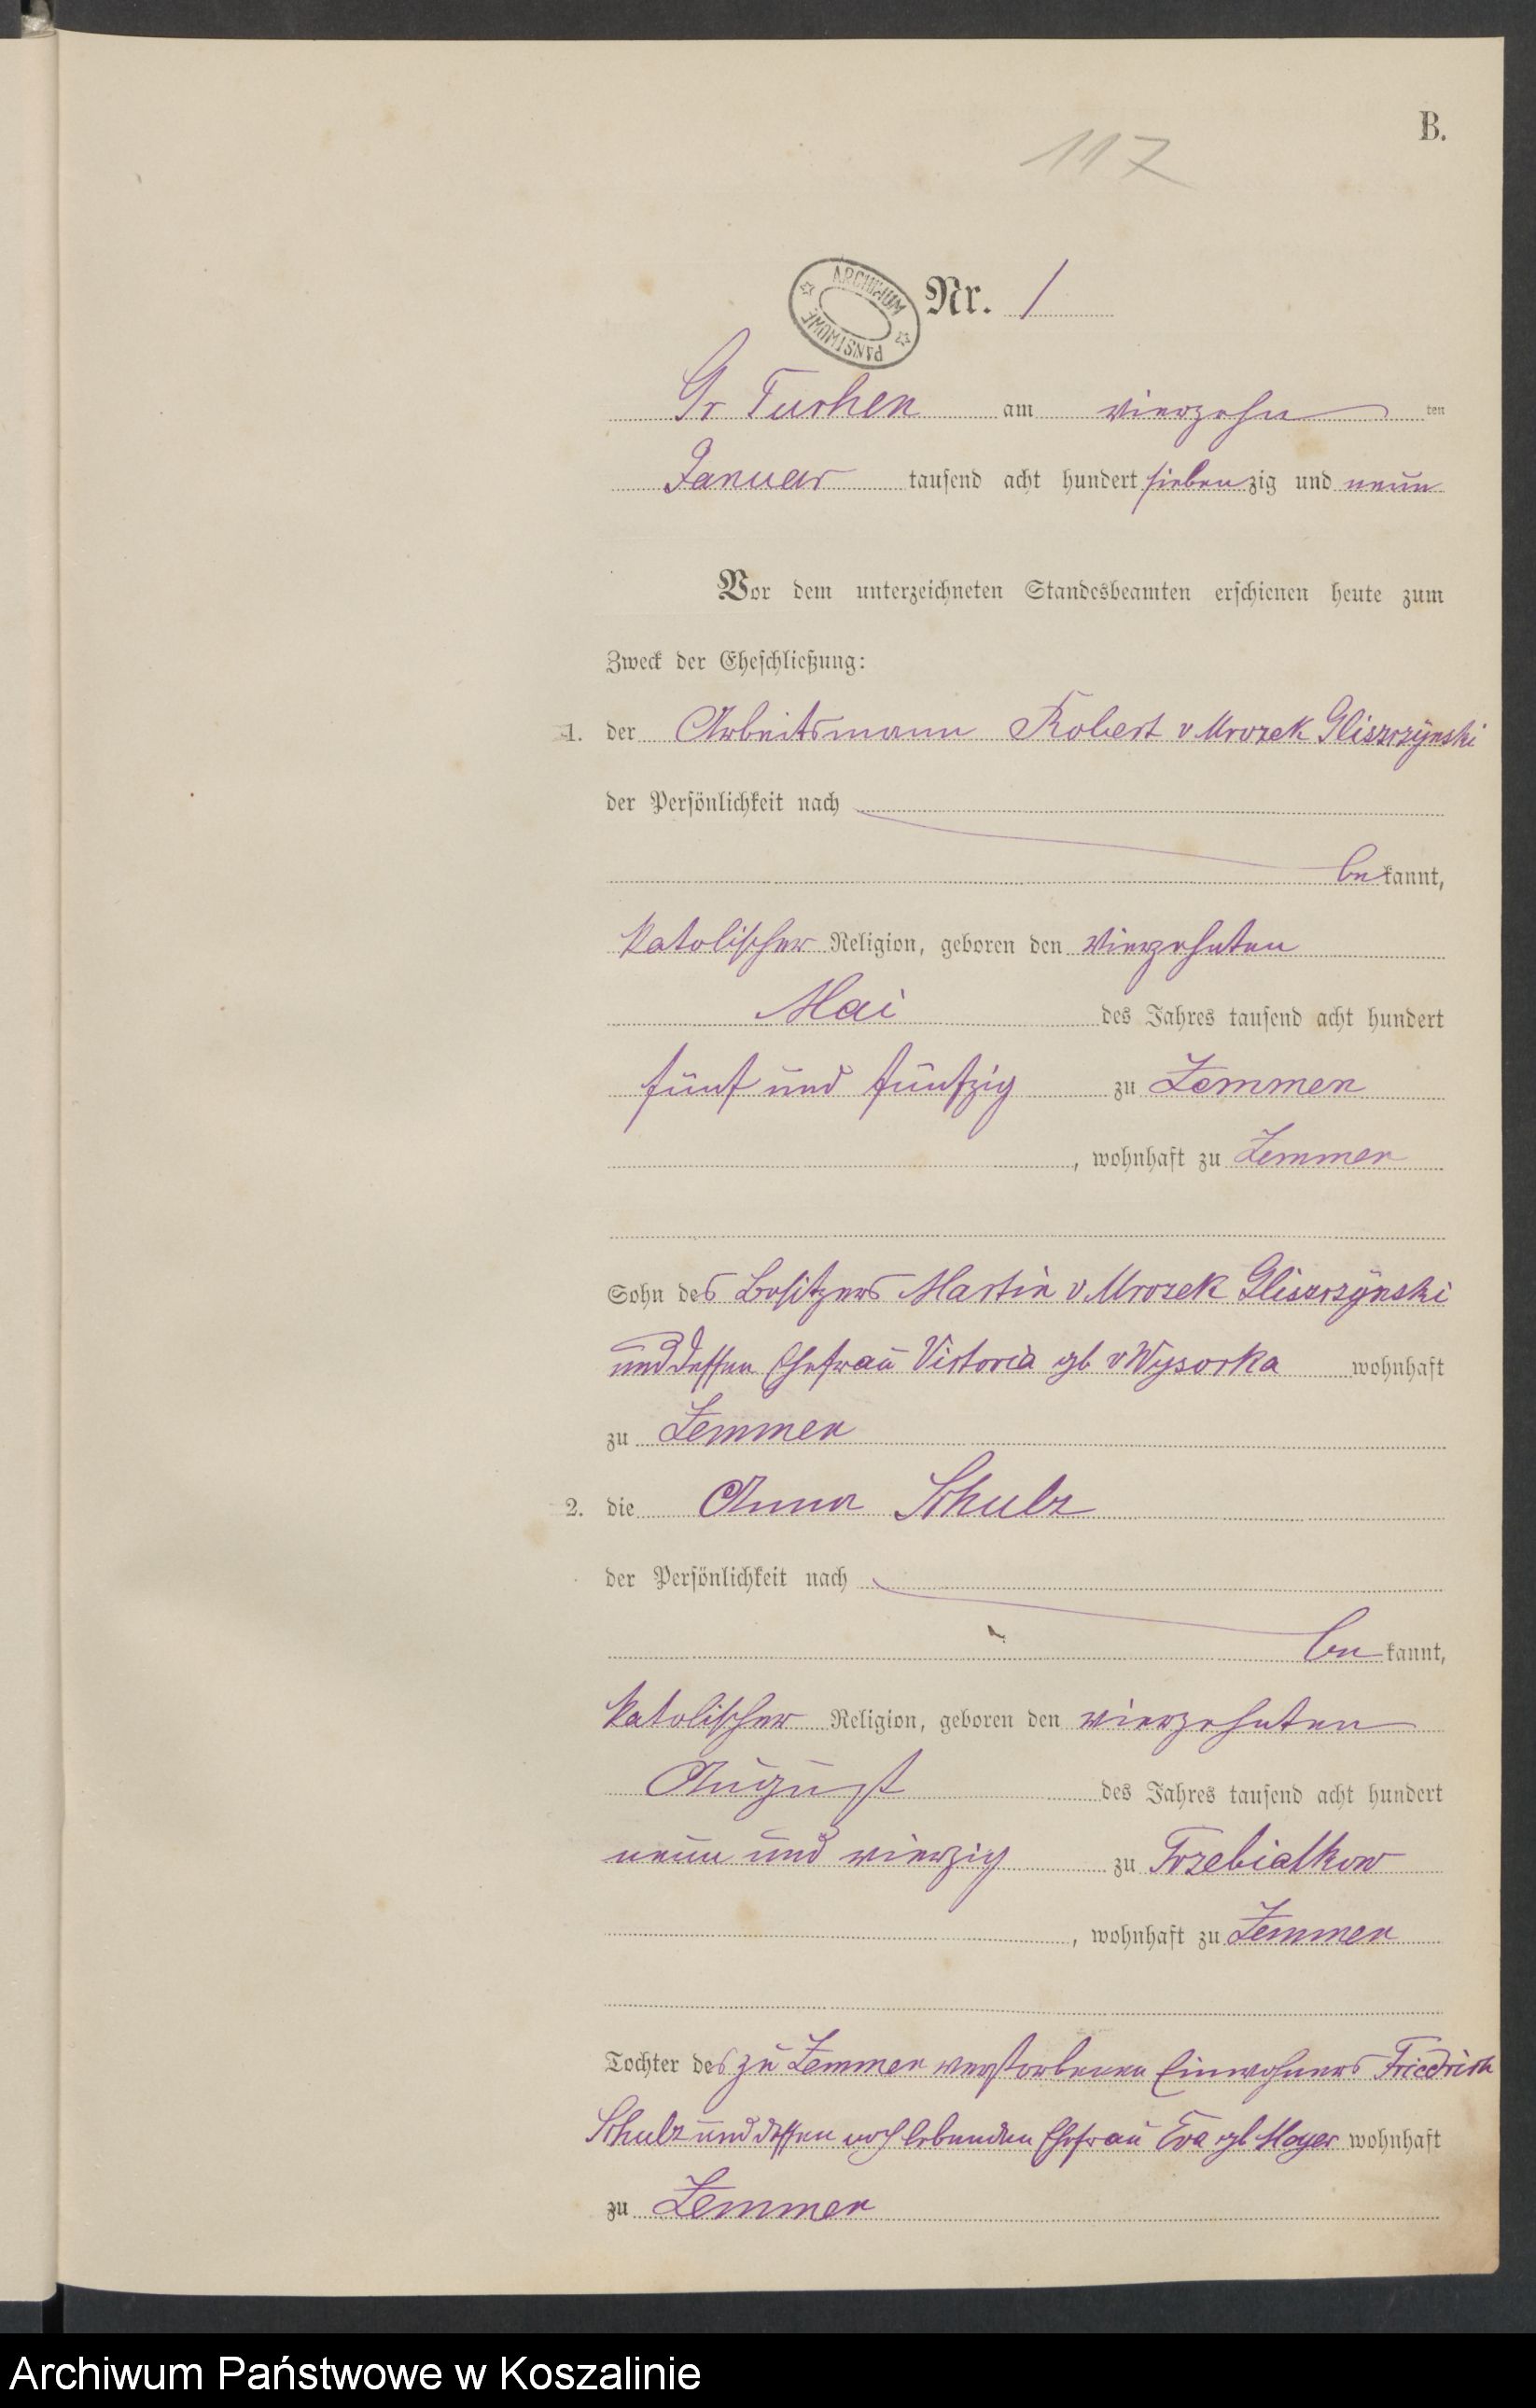 B.
117
ARCHIWUM PAŃSTWOWE
Nr. 1
Gr Tuchen am vierzehn ten
Januar tausend acht hundert siebenzig und neun
Vor dem unterzeichneten Standesbeamten erschienen heute zum
Zweck der Eheschließung:
1. der Arbeitsmann Robert v Mrozek Gliszczynski
der Persönlichkeit nach
bekannt,
katolischer Religion, geboren den vierzehnten
Mai des Jahres tausend acht hundert
fünf und fünfzig zu Zemmen
, wohnhaft zu Zemmen
Sohn des Besitzers Martin v Mrozek Gliszczynski
und dessen Ehefrau Victoria gb v Wysocka wohnhaft
zu Zemmen
2. die Anna Schulz
der Persönlichkeit nach
bekannt,
katolischer Religion, geboren den vierzehnten
August des Jahres tausend acht hundert
neun und vierzig zu Trzebiatkow
, wohnhaft zu Zemmen
Tochter des zu Zemmen verstorbenen Einwohners Friedrich
Schulz und dessen noch lebenden Ehefrau Eva gb Moyer wohnhaft
zu Zemmen
Archiwum Państwowe w Koszalinie